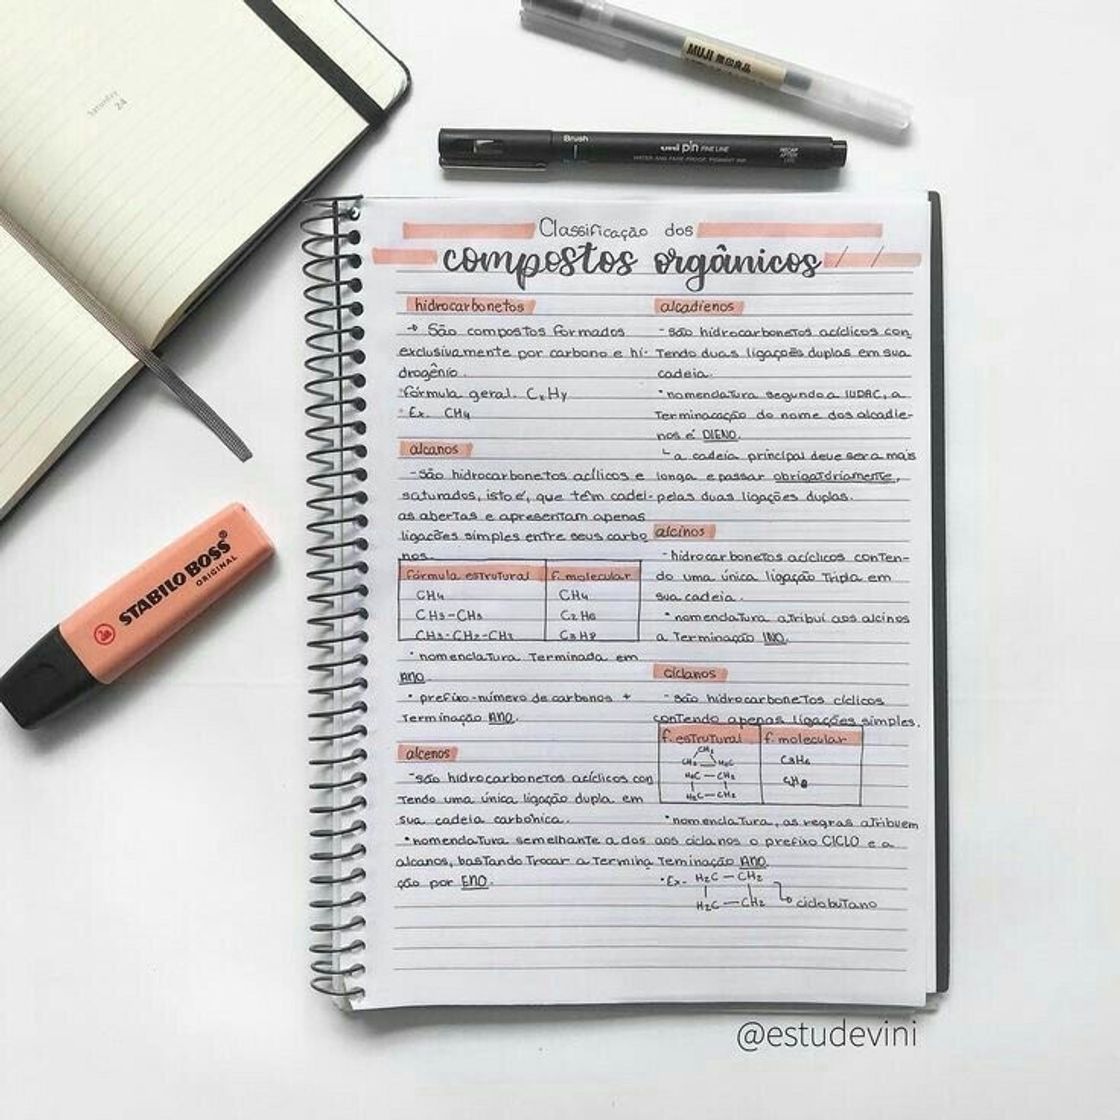 Saturday
24
MUJI 無印良品
Brush
uni pin FINE LINE
WATER AND FADE PROOF, PIGMENT INK
STABILO BOSS®
ORIGINAL
Classificação dos
compostos orgânicos
hidrocarbonetos
→ São compostos formados
exclusivamente por carbono e hi-
drogênio.
•fórmula geral. CxHy
•Ex. CH4
alcanos
-são hidrocarbonetos acílicos e
saturados, isto é, que têm cadei-
as abertas e apresentam apenas
ligações simples entre seus carbo
nos.
fórmula estrutural f. molecular
CH4 CH4
CH3-CH3 C2H6
CH3-CH2-CH3 C3H8
•nomenclatura terminada em
ANO.
• prefixo-número de carbonos +
terminação ANO.
alcenos
-são hidrocarbonetos acíclicos con
tendo uma única ligação dupla em
sua cadeia carbônica.
•nomendatura semelhante a dos
alcanos, bastando trocar a termina
ção por ENO.
alcadienos
-são hidrocarbonetos acíclicos con
tendo duas ligações duplas em sua
cadeia.
•nomendatura segundo a IUPAC, a
terminacação do nome dos alcadie-
nos é DIENO.
a cadeia principal deve ser a mais
longa e passar obrigatóriamente,
pelas duas ligações duplas.
alcinos
-hidrocarbonetos acíclicos conten-
do uma única ligação tripla em
sua cadeia.
•nomendatura atribui aos alcinos
a terminação INO.
ciclanos
-são hidrocarbonetos cíclicos
contendo apenas ligações simples.
f. estrutural f. molecular
CH2
CH2 H2C C3H6
H2C-CH2 C4H8
H2C-CH2
•nomenclatura, as regras atribuem
aos ciclanos o prefixo CICLO e a
teminação ANO.
•Ex- H2C-CH2
H2C-CH2 ciclobutano
@estudevini